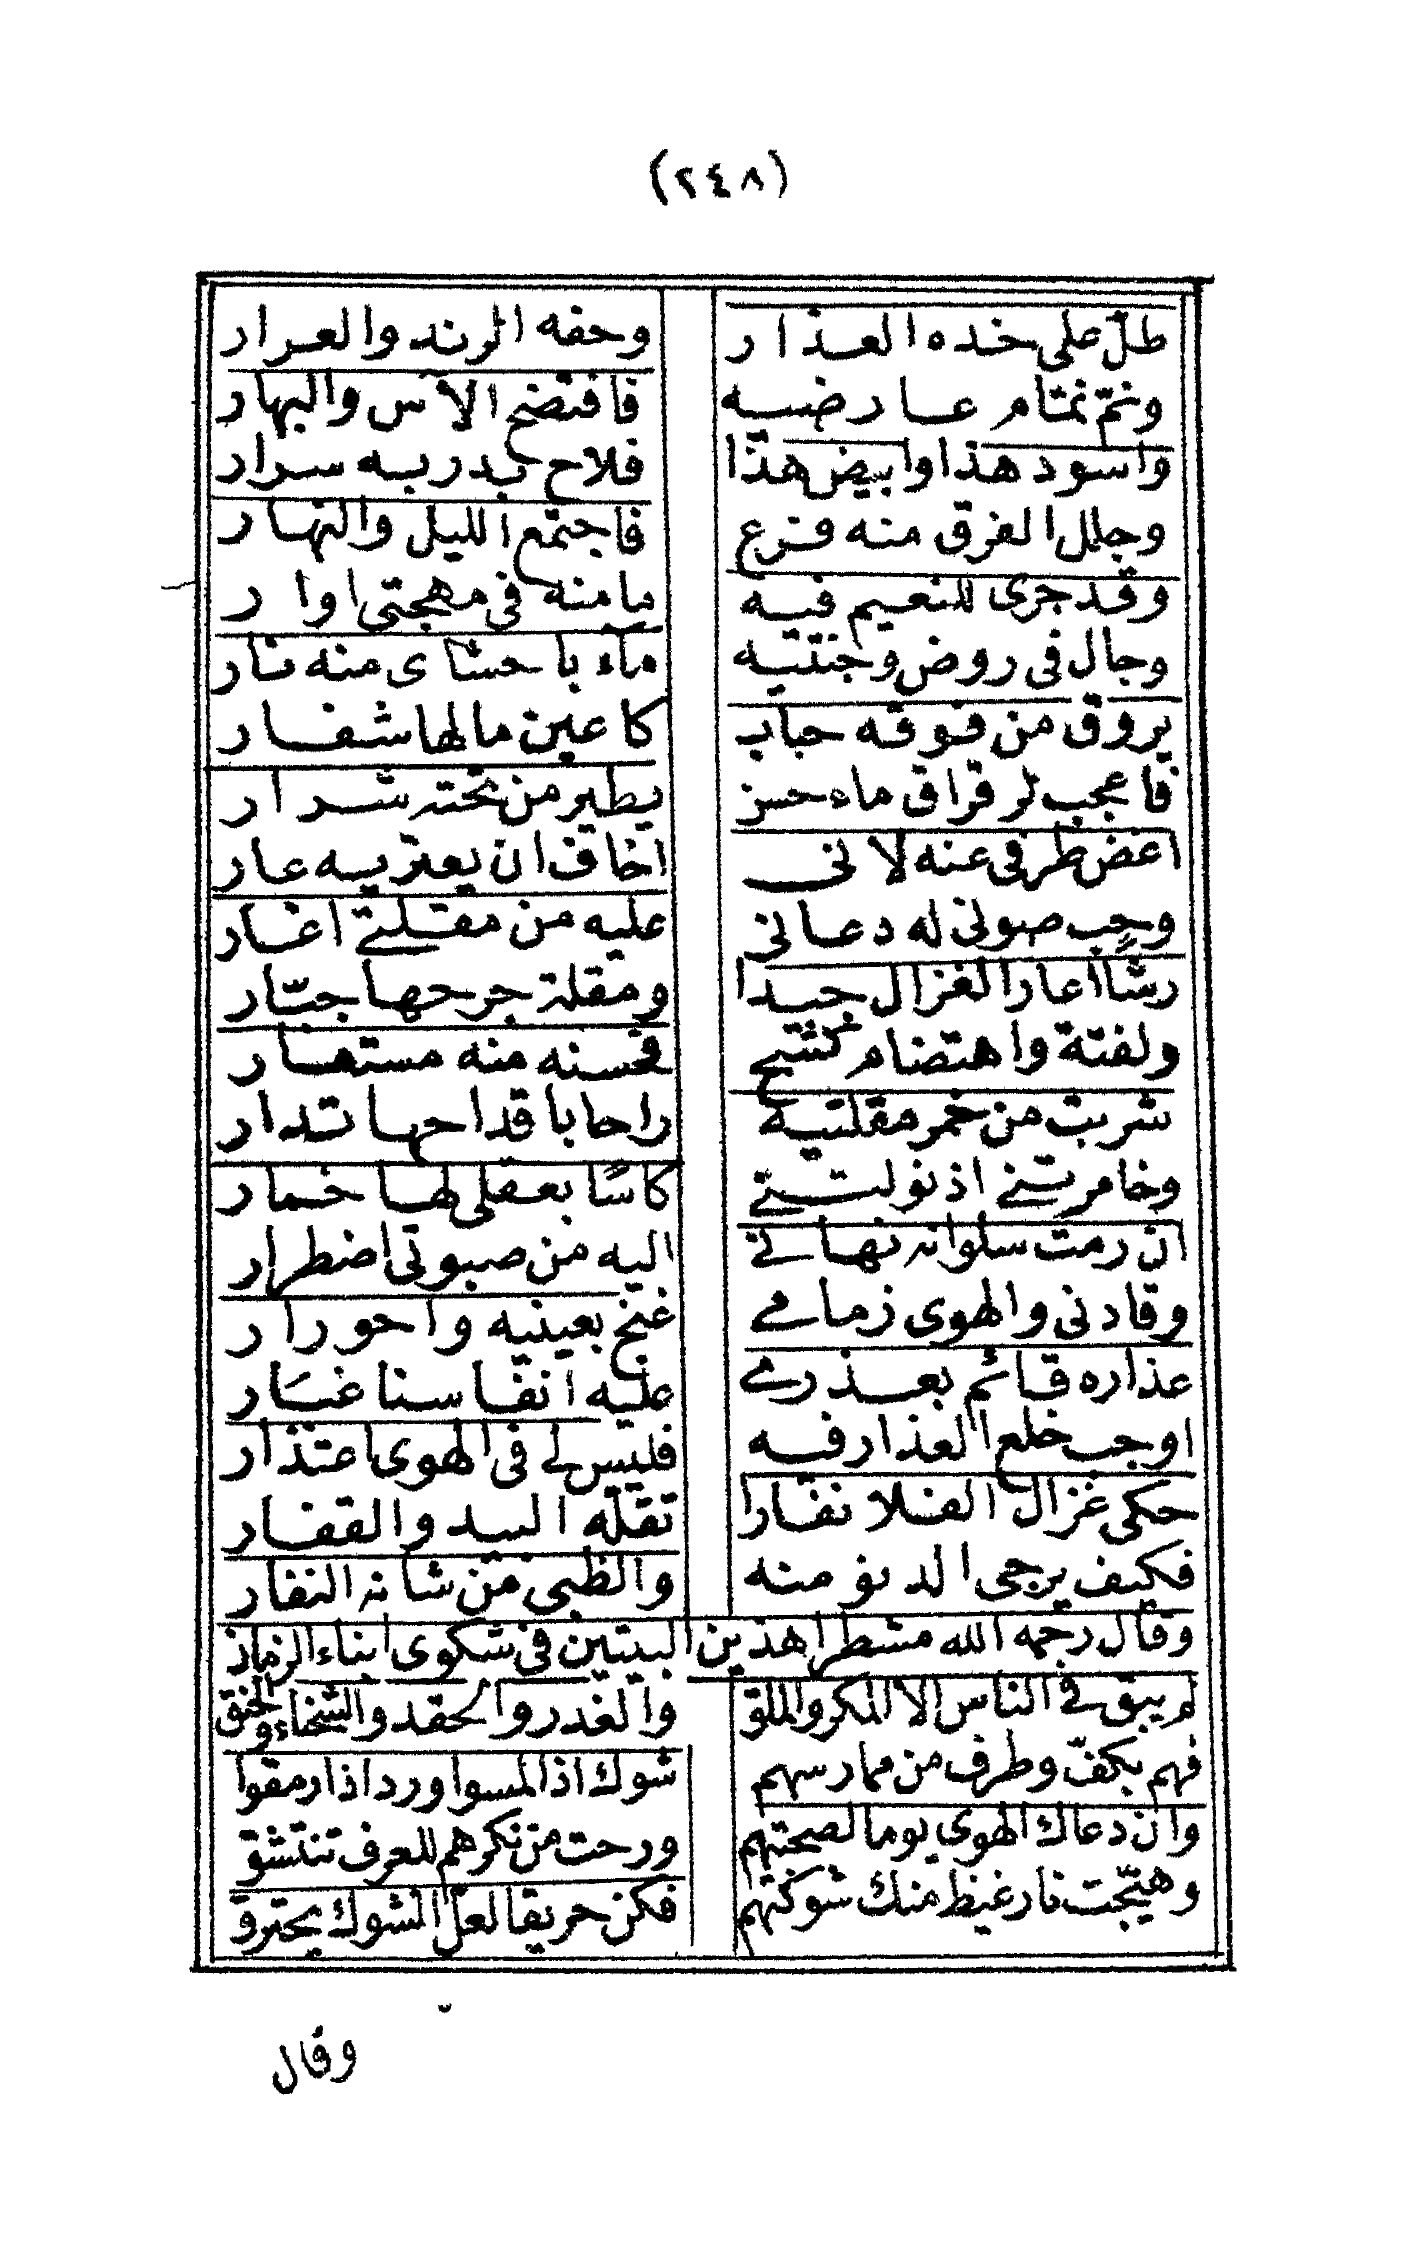 (٢٤٨)
طلّ على خده العذار وحفه الرند والعرار
ونمّ نمّام عارضيه فافتضح الآس والبهار
واسود هذا وابيض هذا فلاح بدر به سرار
وجلل الفرق منه فرع فاجتمع الليل والنهار
وقد جرى للنعيم فيه ما منه في مهجتي اوار
وجال في روض وجنتيه ماء باحشاى منه نار
يروق من فوقه حباب كاعين مالها شفار
فاعجب لرقراق ماء حسن يطير من تحته شرار
اغض طرفي عنه لانى اخاف ان يعتريه عار
وجب صونى له دعانى عليه من مقلتي اغار
رشًا اعار الغزال جيدا ومقلة جرحها جبّار
ولفتة واهتضام كشح فحسنه منه مستعار
شربت من خمر مقلتيه راحا باقداحها تدار
وخامرتني اذ نولتني كاسًا بعقلى لها خمار
ان رمت سلوانه نهاني اليه من صبوتى اضطرار
وقادنى والهوى زمامي غنج بعينيه واحورار
عذاره قائم بعذري عليه انفا سنا غبار
اوجب خلع العذار فيه فليس لي في الهوى اعتذار
حكى غزال الفلا نفارا تقله البيد والقفار
فكيف يرجى الدنو منه والظبي من شانه النفار
وقال رحمه الله مشطرا هذين البيتين في شكوى ابناء الزمان
لم يبق في الناس الا المكر والملق والغدر والحقد والشحناء والحنق
فهم بكفّ وطرف من ممارسهم شوك اذا لمسوا ورد اذا رمقوا
وان دعاك الهوى يوما لصحبتهم ورحت من نكرهم للعرف تنتشق
وهيّجت نار غيظ منك شوكتهم فكن حريقا لعلّ الشوك يحترق
وقال